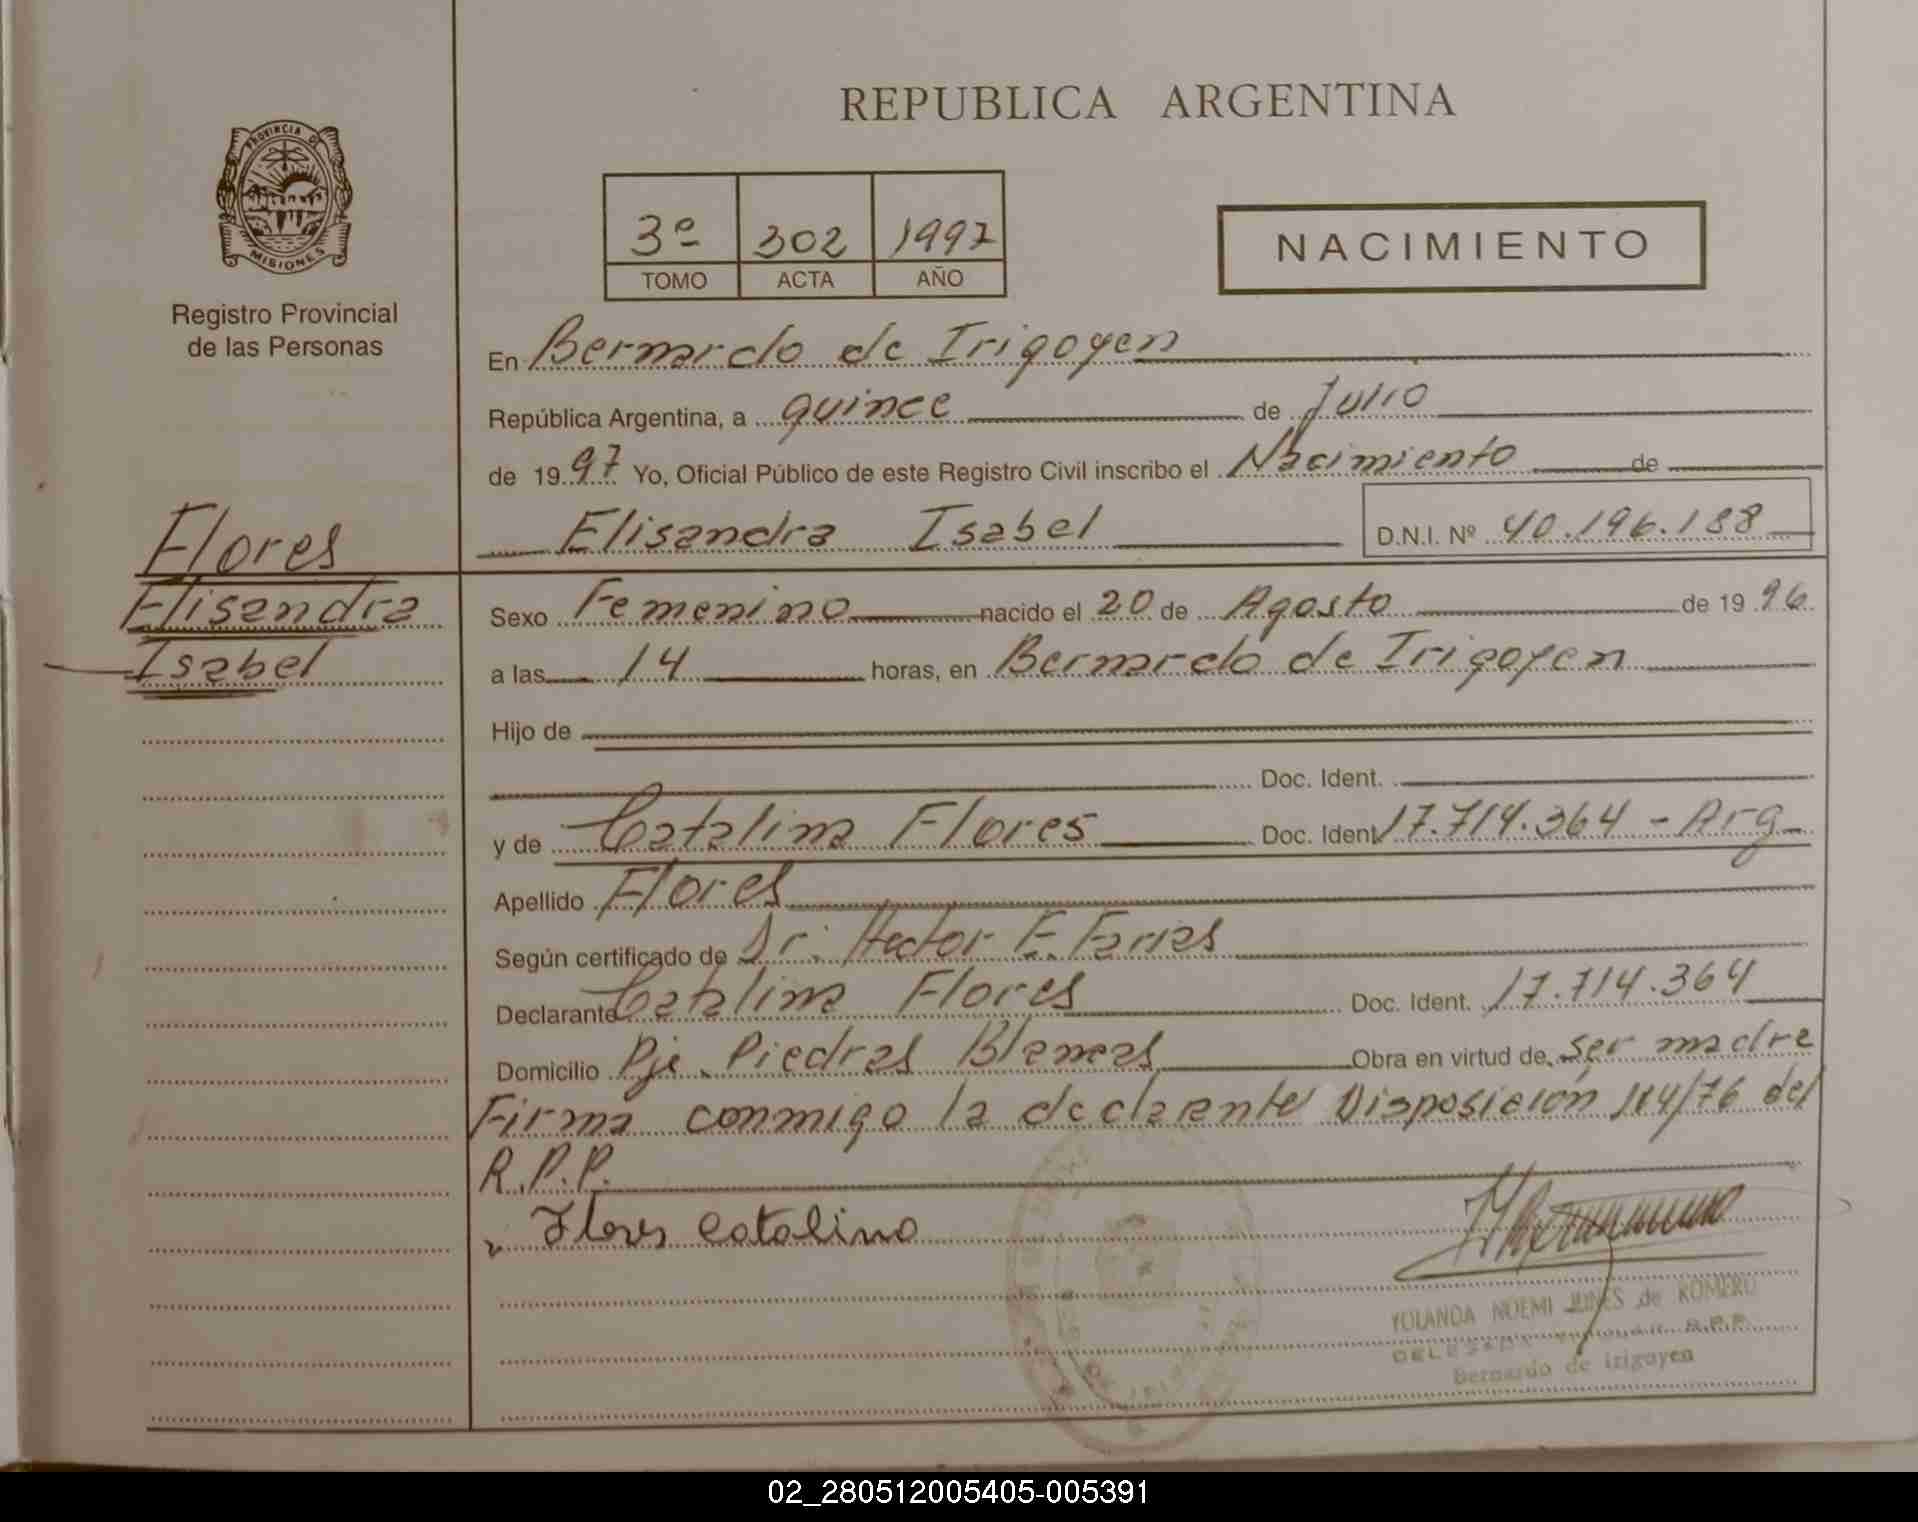 REPUBLICA ARGENTINA
PROVINCIA DE
MISIONES
Registro Provincial
de las Personas
3º 302 1997
TOMO ACTA AÑO
NACIMIENTO
En Bernardo de Irigoyen
República Argentina, a quince de Julio
de 1997 Yo, Oficial Público de este Registro Civil inscribo el Nacimiento de
Elisandra Isabel D.N.I. Nº 40.196.188
Flores
Elisandra
Isabel
Sexo Femenino nacido el 20 de Agosto de 1996
a las 14 horas, en Bernardo de Irigoyen
Hijo de
Doc. Ident.
y de Catalina Flores Doc. Ident. 17.714.364 - Arg
Apellido Flores
Según certificado de Dr. Hector E. Farias
Declarante Catalina Flores Doc. Ident. 17.714.364
Domicilio Pje. Piedras Blancas Obra en virtud de ser madre
Firma conmigo la declarante Disposición 114/76 del
R.P.P.
Flores Catalina
YOLANDA NOEMI de ROMERO
DELEGADA R.P.P.
Bernardo de Irigoyen
02_280512005405-005391